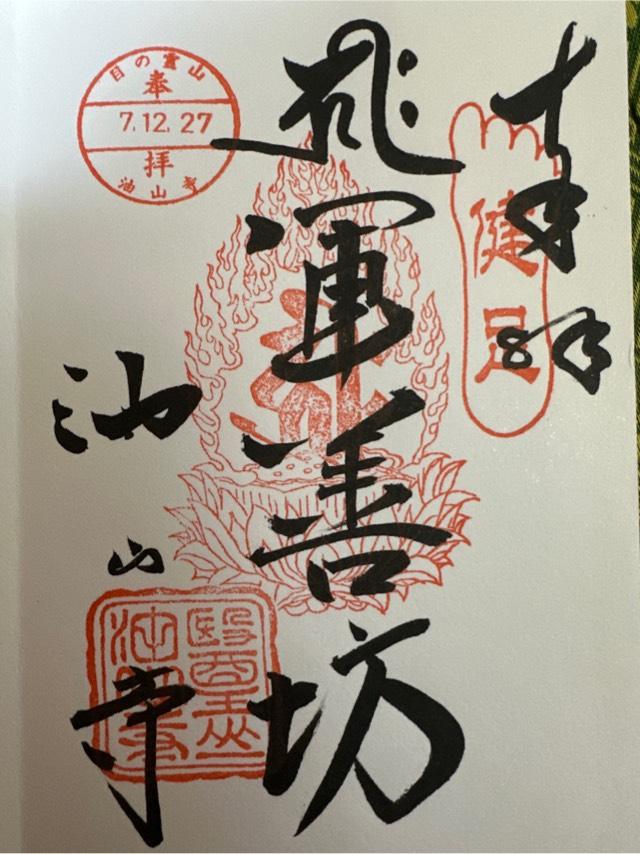 奉拝
健足
軍善坊
目の霊山
奉
7.12.27
拝
油山寺
油山寺
醫王山
油山寺